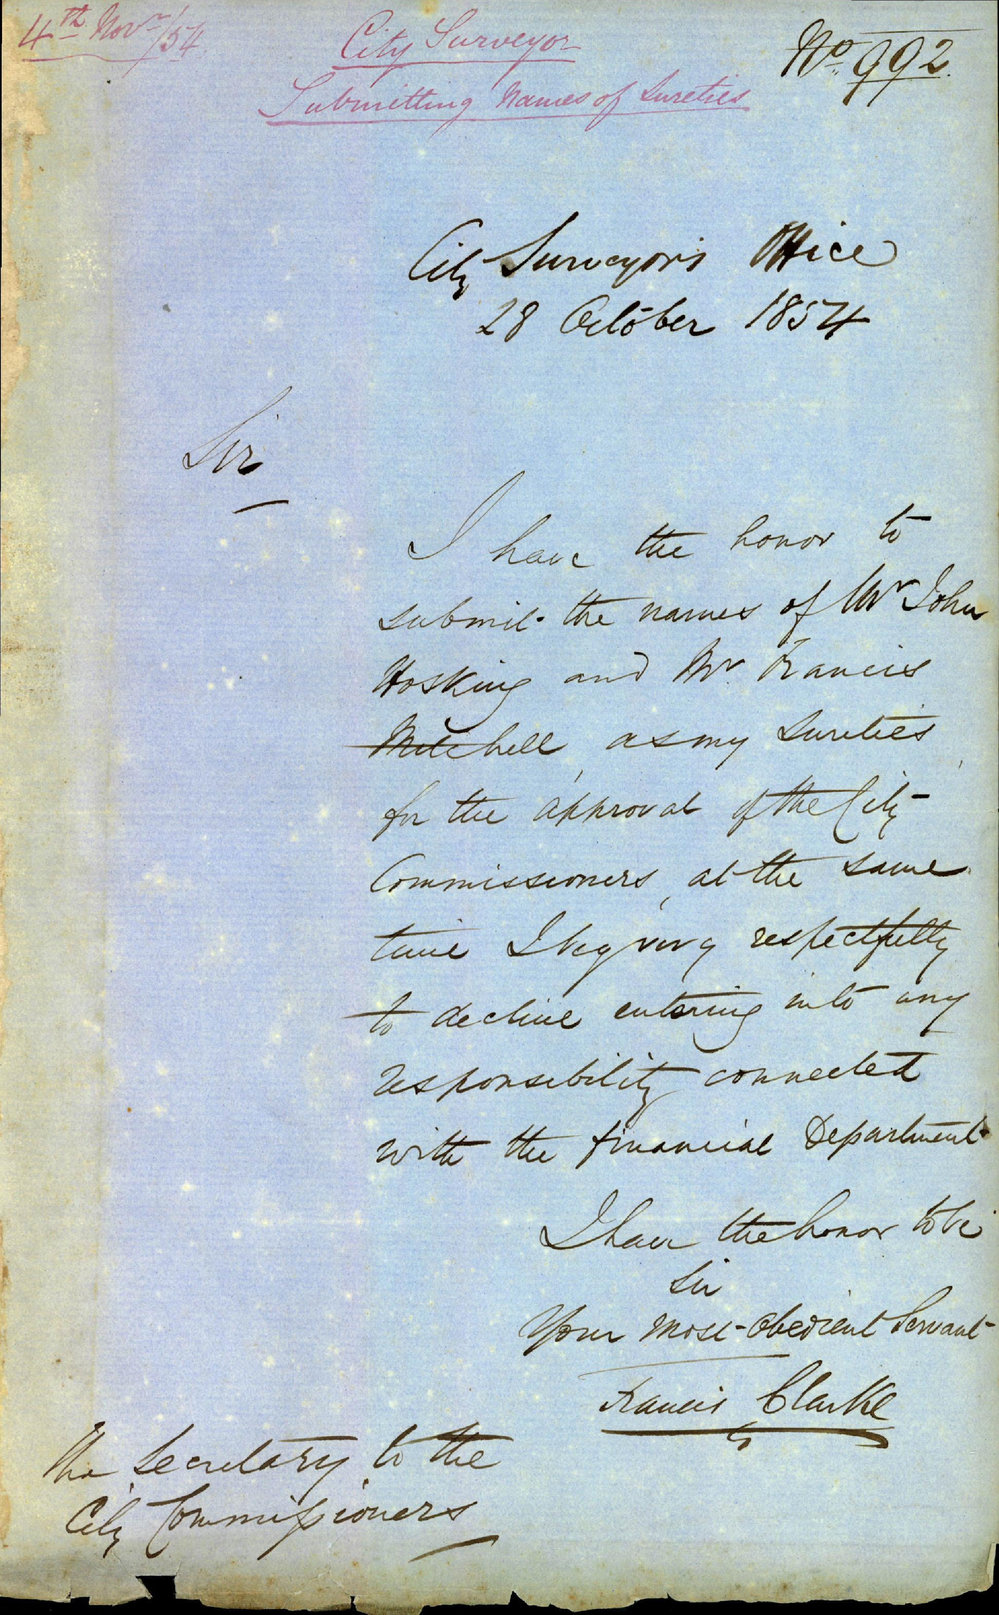 4th Novr/54
City Surveyor
Submitting Names of Sureties
No. 992.
City Surveyor's Office
28 October 1854
Sir
I have the honor to
submit the names of Mr John
Hosking and Mr Francis
Mitchell as my Sureties
for the approval of the City
Commissioners, at the same
time I beg very respectfully
to decline entering into any
responsibility connected
with the financial Department
I have the honor to be
Sir
Your most obedient Servant
Francis Clarke
The Secretary to the
City Commissioners